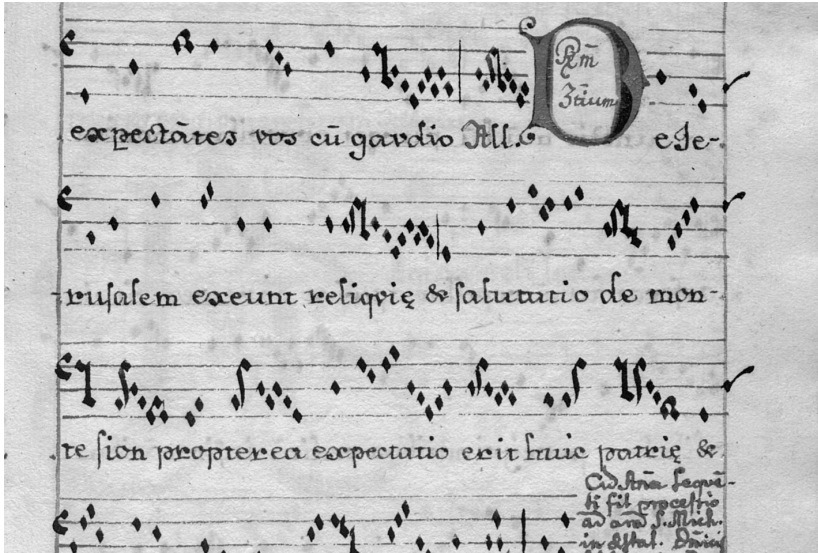 expectātes vos cū gavdio All. D e Ie-
rusalem exeunt reliqvię & salutatio de mon-
te sion propterea expectatio erit huic patrię &
Cū Añā sequē-
ti fit processio
ad arā S. Mich.